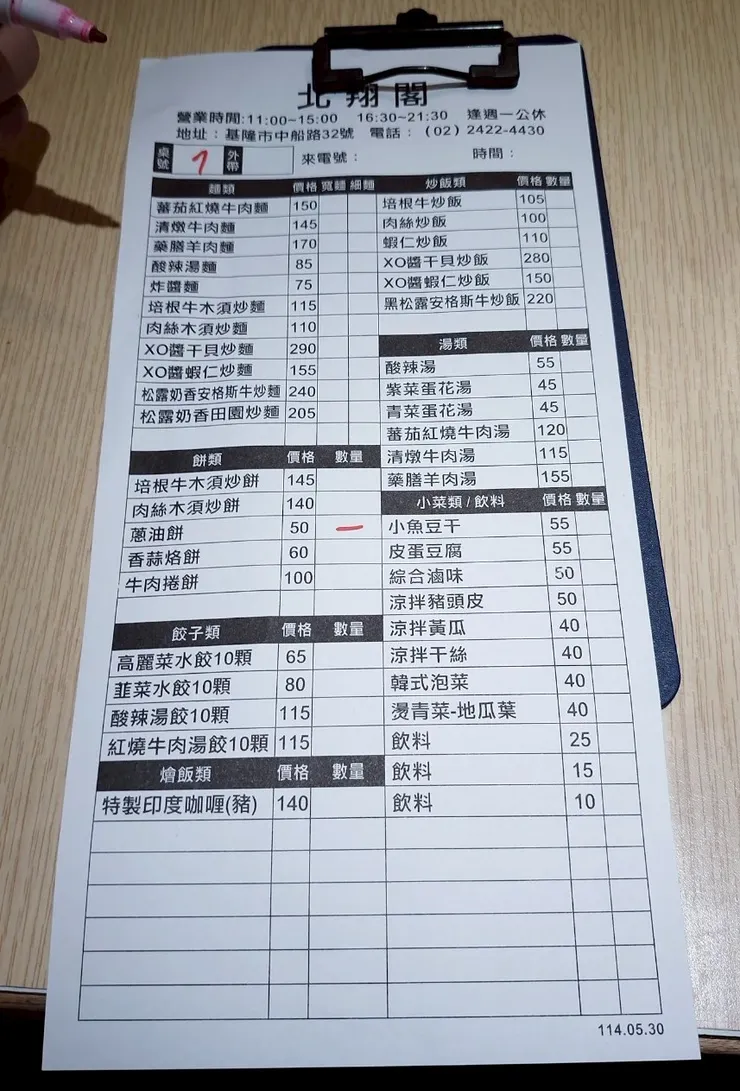 北翔閣
營業時間:11:00~15:00 16:30~21:30 逢週一公休
地址:基隆市中船路32號 電話:(02)2422-4430
桌號 1 外帶 來電號: 時間:
麵類 價格 寬麵 細麵
蕃茄紅燒牛肉麵 150
清燉牛肉麵 145
藥膳羊肉麵 170
酸辣湯麵 85
炸醬麵 75
培根牛木須炒麵 115
肉絲木須炒麵 110
XO醬干貝炒麵 290
XO醬蝦仁炒麵 155
松露奶香安格斯牛炒麵 240
松露奶香田園炒麵 205
餅類 價格 數量
培根牛木須炒餅 145
肉絲木須炒餅 140
蔥油餅 50 一
香蒜烙餅 60
牛肉捲餅 100
餃子類 價格 數量
高麗菜水餃10顆 65
韭菜水餃10顆 80
酸辣湯餃10顆 115
紅燒牛肉湯餃10顆 115
燴飯類 價格 數量
特製印度咖喱(豬) 140
炒飯類 價格 數量
培根牛炒飯 105
肉絲炒飯 100
蝦仁炒飯 110
XO醬干貝炒飯 280
XO醬蝦仁炒飯 150
黑松露安格斯牛炒飯 220
湯類 價格 數量
酸辣湯 55
紫菜蛋花湯 45
青菜蛋花湯 45
蕃茄紅燒牛肉湯 120
清燉牛肉湯 115
藥膳羊肉湯 155
小菜類/飲料 價格 數量
小魚豆干 55
皮蛋豆腐 55
綜合滷味 50
涼拌豬頭皮 50
涼拌黃瓜 40
涼拌干絲 40
韓式泡菜 40
燙青菜-地瓜葉 40
飲料 25
飲料 15
飲料 10
114.05.30